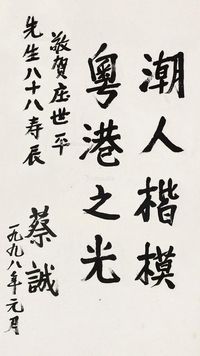 潮人楷模
粤港之光
敬賀庄世平
先生八十八寿辰
蔡誠
一九九八年元月